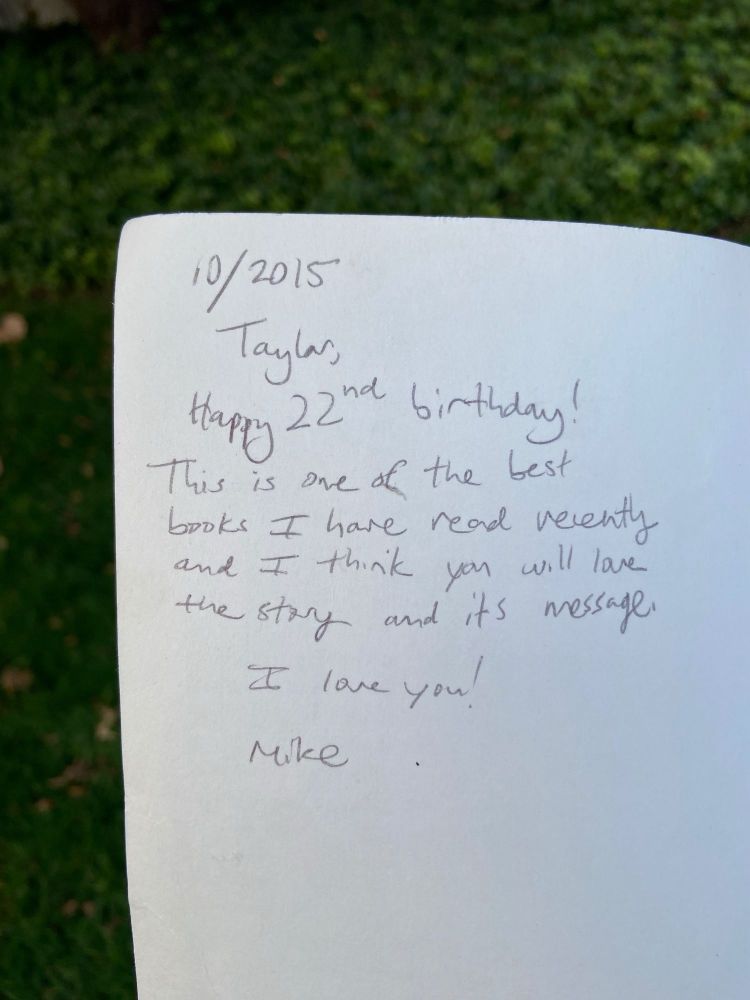 10/2015
Taylor,
Happy 22nd birthday!
This is one of the best
books I have read recently
and I think you will love
the story and it's message.
I love you!
Mike